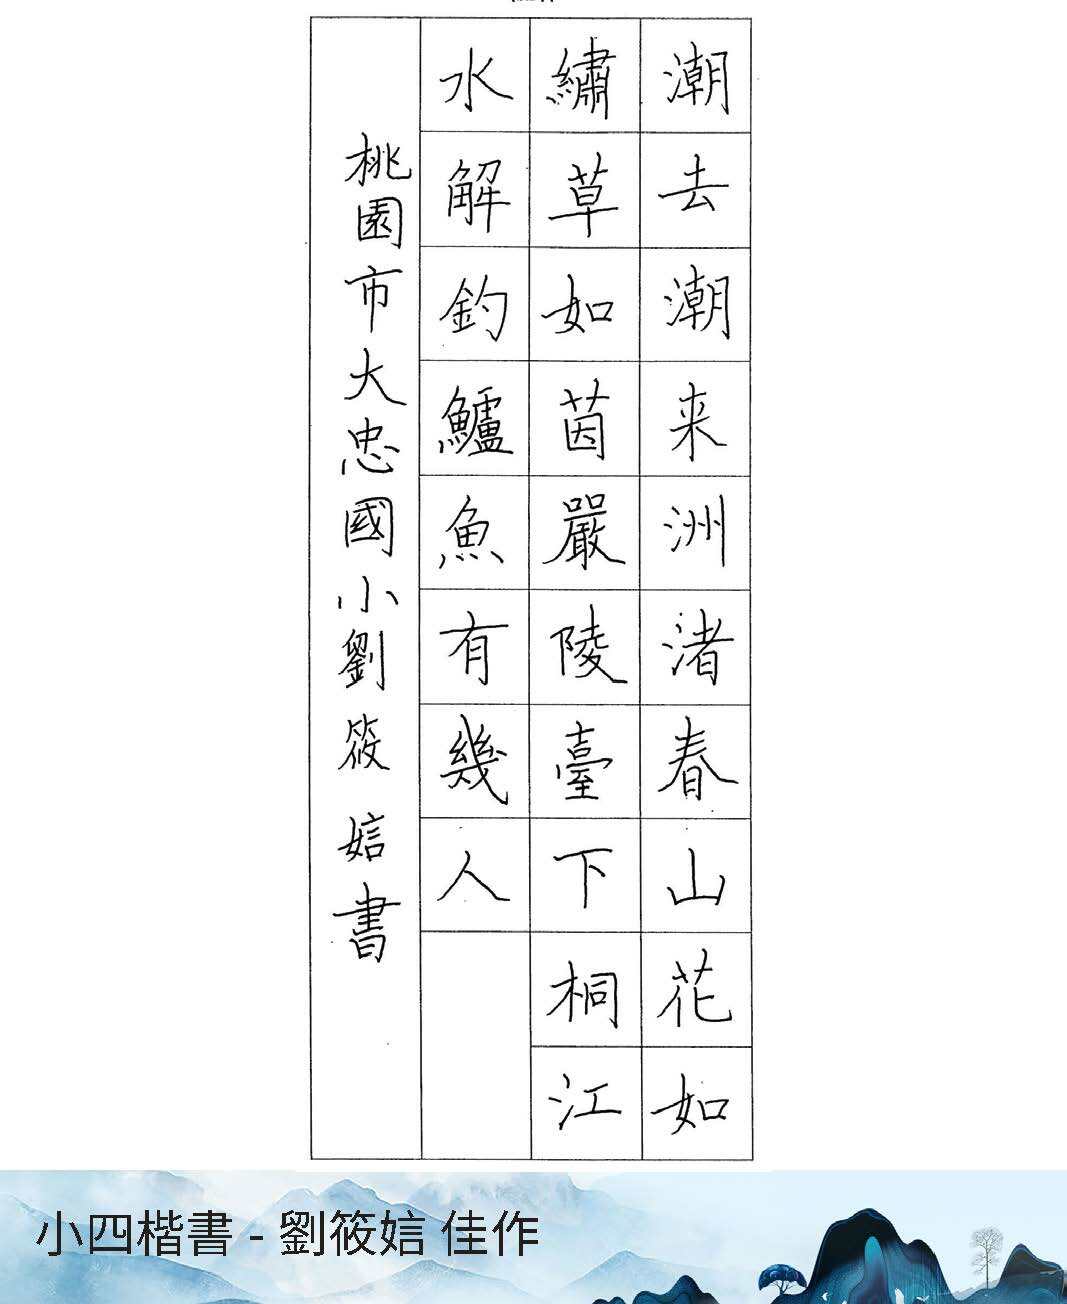 潮去潮来洲渚春山花如
繡草如茵嚴陵臺下桐江
水解釣鱸魚有幾人
桃園市大忠國小劉筱娮書
小四楷書 - 劉筱娮 佳作